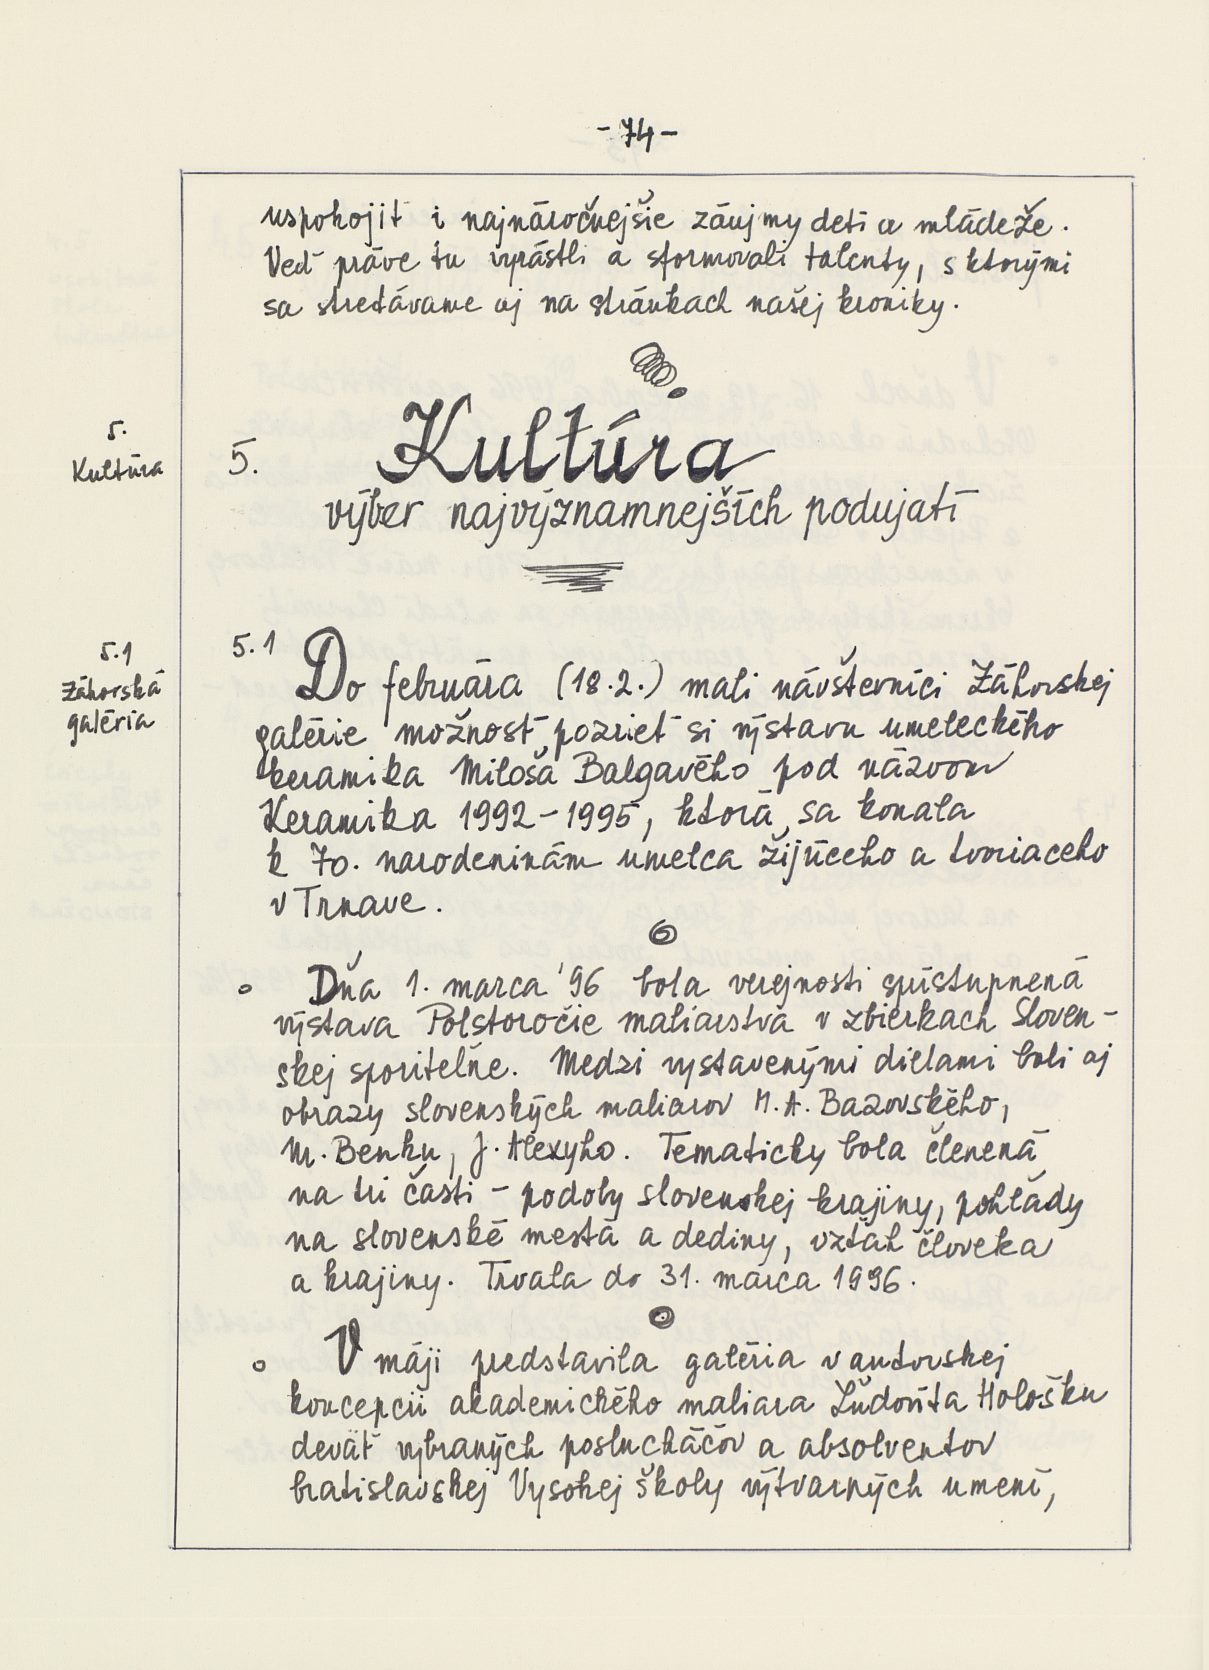 - 74 -
uspokojiť i najnáročnejšie záujmy detí a mládeže.
Veď práve tu vyrástli a sformovali talenty, s ktorými
sa stretávame aj na stránkach našej kroniky.
5.
Kultúra
5. Kultúra
výber najvýznamnejších podujatí
5.1
Záhorská
galéria
5.1 Do februára (18.2.) mali návštevníci Záhorskej
galérie možnosť pozrieť si výstavu umeleckého
keramika Miloša Balgavého pod názvom
Keramika 1992-1995, ktorá sa konala
k 70. narodeninám umelca žijúceho a tvoriaceho
v Trnave.
Dňa 1. marca '96 bola verejnosti sprístupnená
výstava Polstoročie maliarstva v zbierkach Sloven-
skej sporiteľne. Medzi vystavenými dielami boli aj
obrazy slovenských maliarov M. A. Bazovského,
M. Benku, J. Alexyho. Tematicky bola členená
na tri časti - podoby slovenskej krajiny, pohľady
na slovenské mestá a dediny, vzťah človeka
a krajiny. Trvala do 31. marca 1996.
V máji predstavila galéria v autorskej
koncepcii akademického maliara Ľudovíta Hološku
deväť vybraných poslucháčov a absolventov
bratislavskej Vysokej školy výtvarných umení,